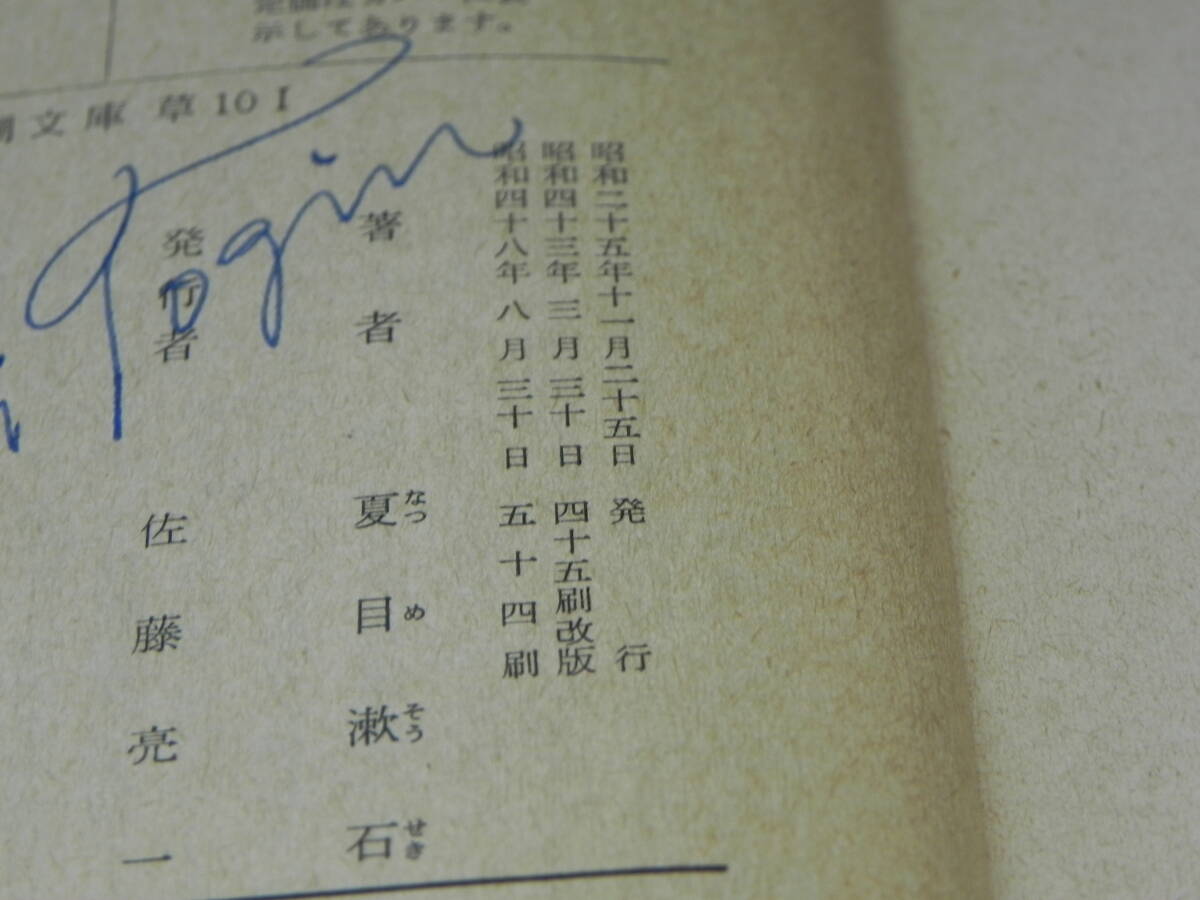 示してあります。
文庫 草10I
昭和二十五年十一月二十五日 発行
昭和四十三年三月三十日 四十五刷改版
昭和四十八年八月三十日 五十四刷
著者 夏目漱石
なつ め そう せき
発行者 佐藤亮一